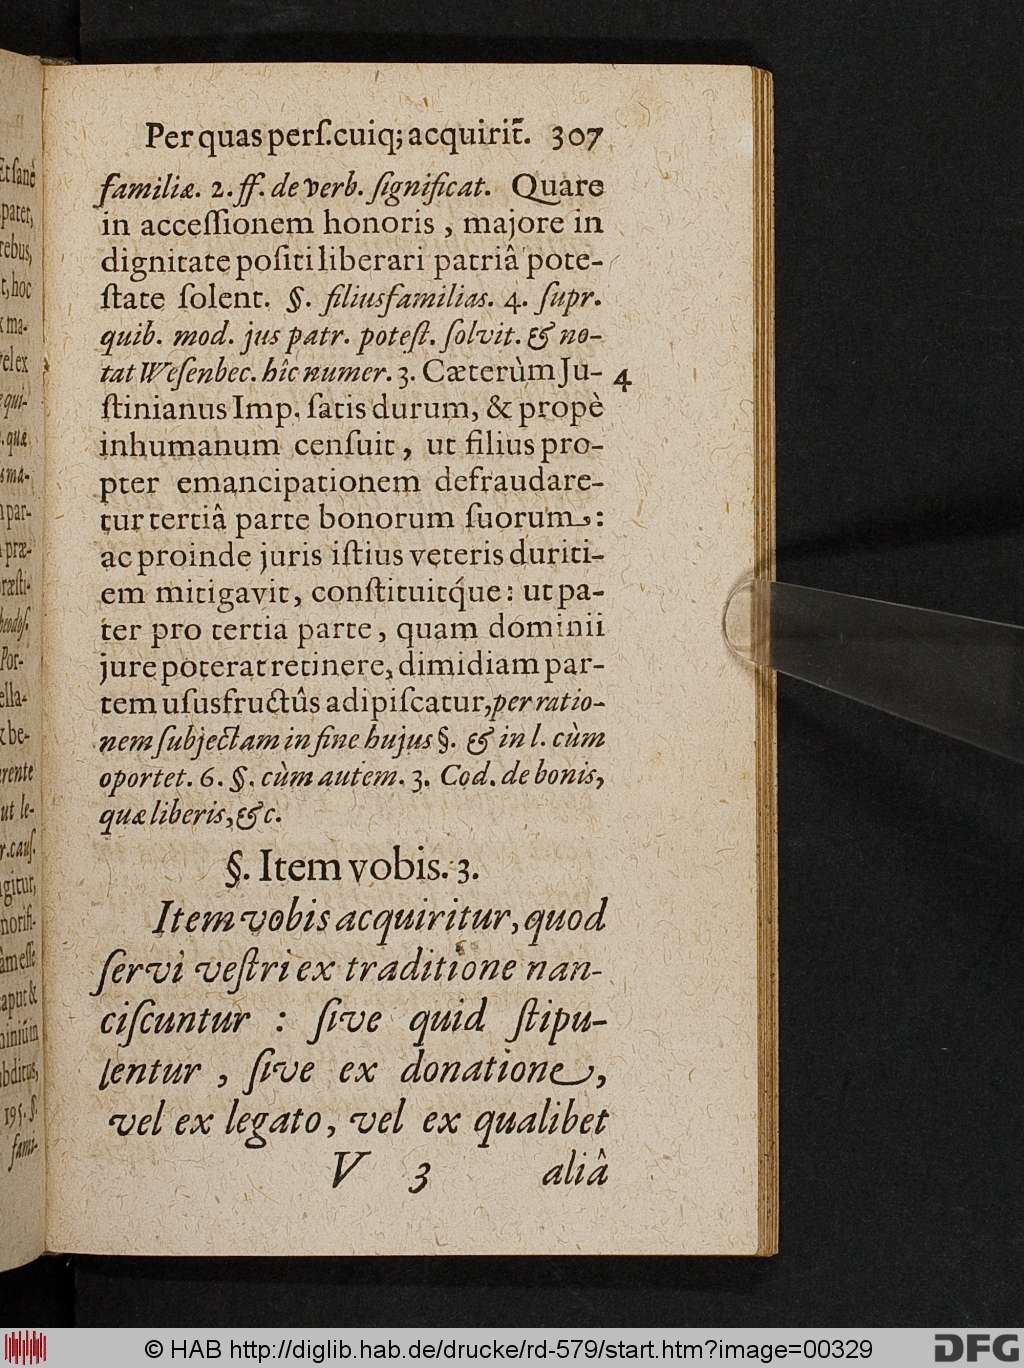 Per quas perſ. cuiq; acquirit̃. 307
familiæ. 2. ff. de verb. ſignificat. Quare
in acceſſionem honoris, majore in
dignitate poſiti liberari patriâ pote-
ſtate ſolent. §. filiusfamilias. 4. ſupr.
quib. mod. jus patr. poteſt. ſolvit. & no-
tat Weſenbec. hîc numer. 3. Cæterùm Ju- 4
ſtinianus Imp. ſatis durum, & propè
inhumanum cenſuit, ut filius pro-
pter emancipationem defraudare-
tur tertiâ parte bonorum ſuorum,:
ac proinde juris iſtius veteris duriti-
em mitigavit, conſtituitq́ue: ut pa-
ter pro tertia parte, quam dominii
jure poterat retinere, dimidiam par-
tem uſusfructûs adipiſcatur, per ratio-
nem ſubjectam in fine hujus §. & in l. cùm
oportet. 6. §. cùm autem. 3. Cod. de bonis,
quæ liberis, &c.
§. Item vobis. 3.
Item vobis acquiritur, quod
ſervi veſtri ex traditione nan-
ciſcuntur : ſive quid ſtipu-
lentur, ſive ex donatione,
vel ex legato, vel ex qualibet
V 3 aliâ
Et ſanè
pater,
rebus,
t, hoc
x ma-
vel ex
qui-
quæ
ma-
par-
præ-
ræſti-
heodoſ.
Por-
ella-
be-
rente
ut le-
r. cauſ.
gitur,
norifi-
âm eſſe
caput &
miniũ in
bditus,
195. §.
fami-
© HAB http://diglib.hab.de/drucke/rd-579/start.htm?image=00329
DFG